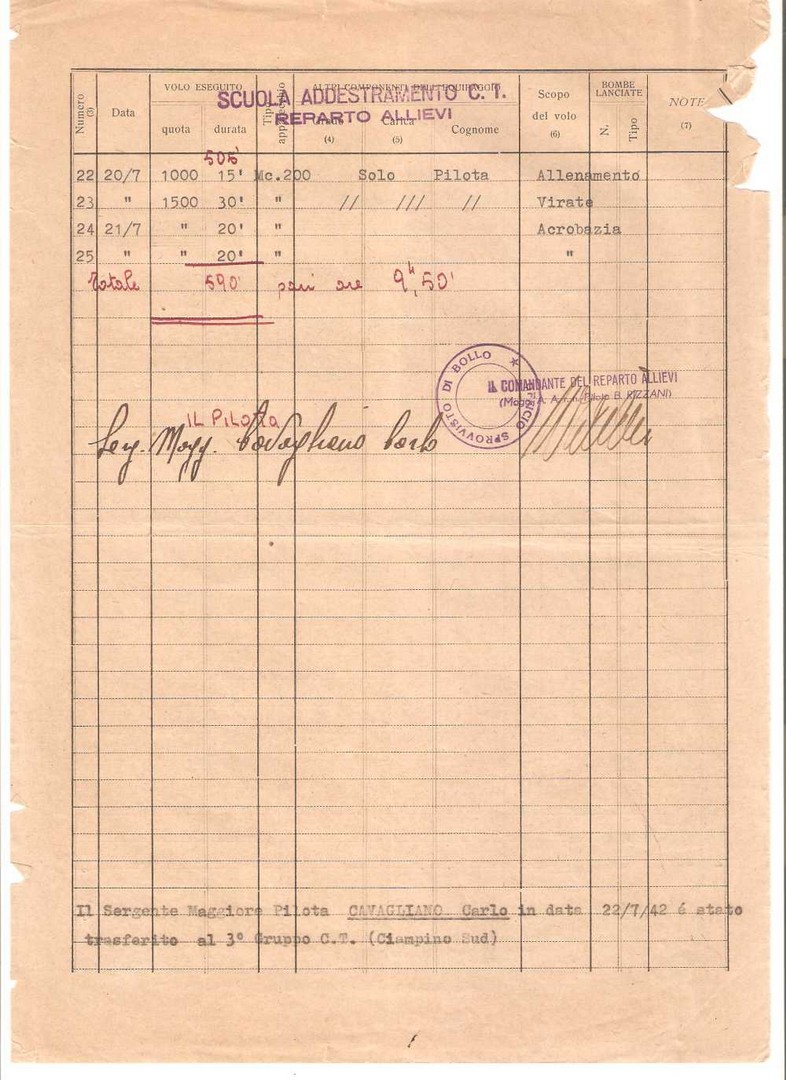 VOLO ESEGUITO ALTRI COMPONENTI DELL'EQUIPAGGIO BOMBE LANCIATE
SCUOLA ADDESTRAMENTO C. T.
REPARTO ALLIEVI
Numero (3) Data quota durata Tipo Grado (4) Carica (5) Cognome Scopo del volo (6) N. Tipo NOTE (7)
505'
22 20/7 1000 15' Mc.200 Solo Pilota Allenamento
23 " 1500 30' " // /// // Virate
24 21/7 " 20' " Acrobazia
25 " " 20' " "
Totale 590' pari ore 9h,50'
UFFICIO SPROVVISTO DI BOLLO
IL COMANDANTE DEL REPARTO ALLIEVI
Pilota B. RIZZANI)
IL PILOTA
Serg. Magg. Cavagliano Carlo
Il Sergente Maggiore Pilota CAVAGLIANO Carlo in data 22/7/42 é stato
trasferito al 3° Gruppo C.T. (Ciampino Sud)